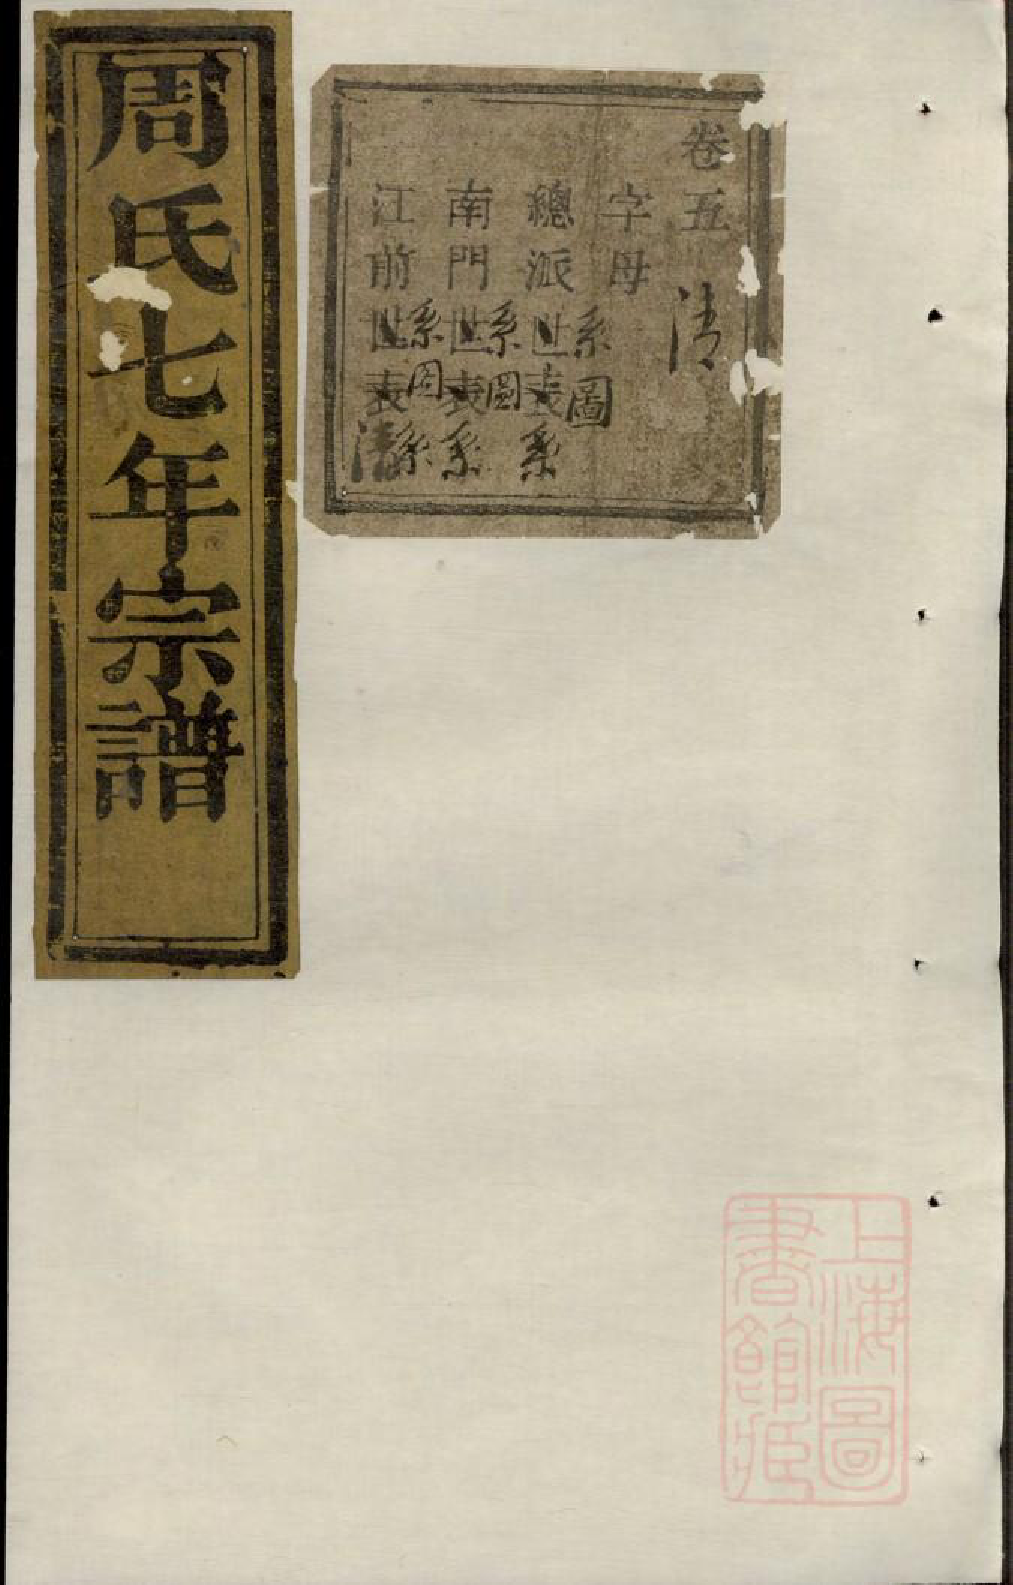 周氏七年宗譜
卷五 清
字母
總派世表系
系圖
南門世表系
系圖
江前世表
系圖
系
上海圖
書館藏